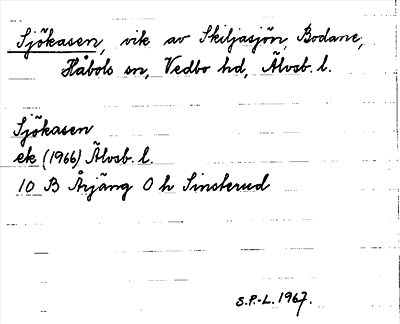 Sjökasen, vik av Skiljasjön, Bodane,
Håbols sn, Vedbo hd, Älvsb. l.
Sjökasen
ek (1966) Älvsb. l.
10 B Årjäng O h Sinsterud
S.P.-L. 1967.